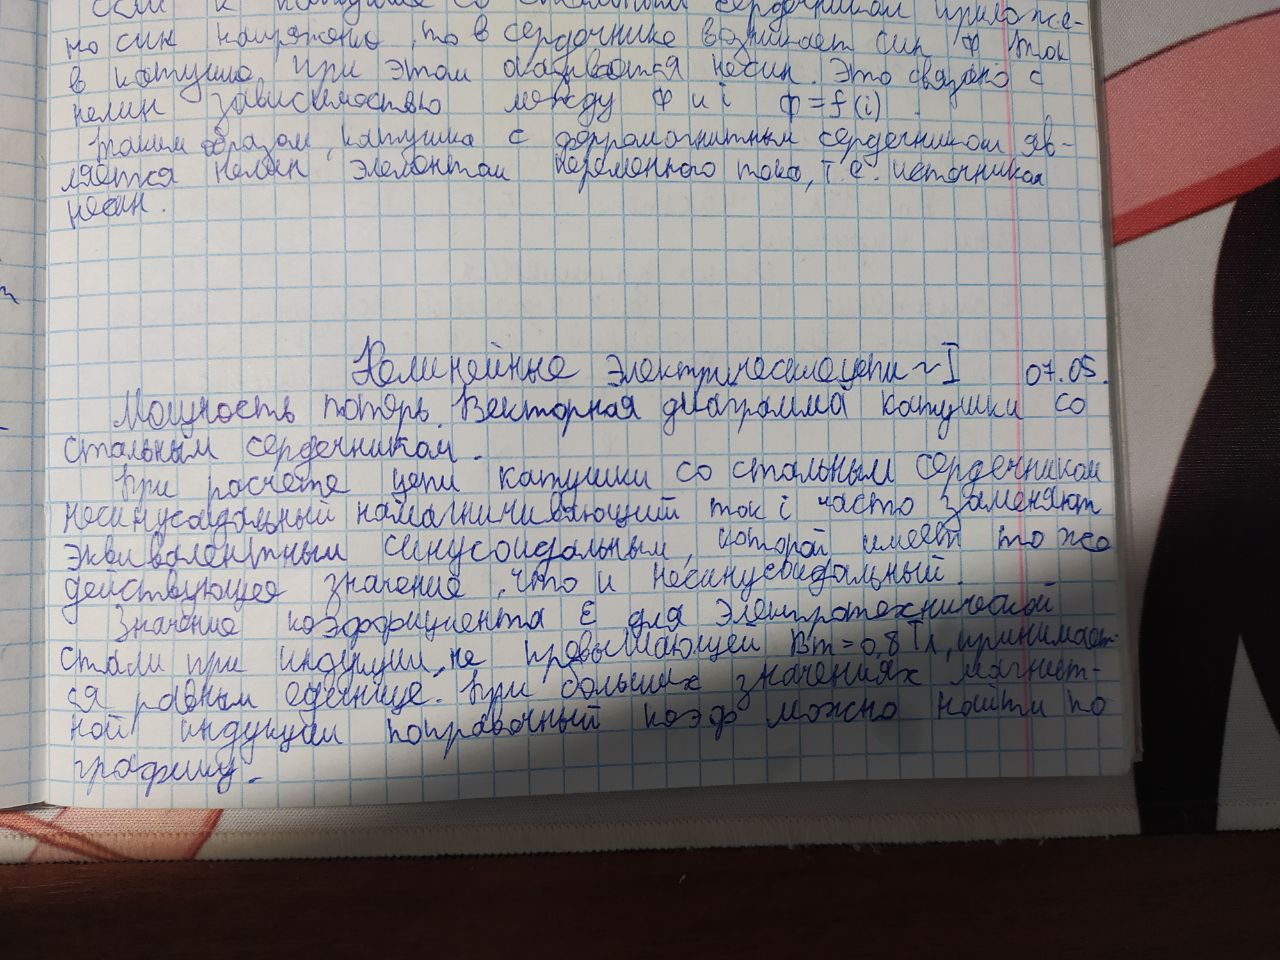 Если к катушке со стальным сердечником приложе-
но син напряжение, то в сердечнике возникает син Ф. Ток
в катушке при этом оказывается несин. Это связано с
нелин зависимостью между Ф и i Ф = f(i).
Таким образом, катушка с ферромагнитным сердечником яв-
ляется нелин элементом переменного тока, т.е. источником
несин.
Нелинейные электрические цепи ~ I 07.05.
Мощность потерь. Векторная диаграмма катушки со
стальным сердечником.
При расчёте цепи катушки со стальным сердечником
несинусоидальный намагничивающий ток i часто заменяют
эквивалентным синусоидальным, который имеет то же
действующее значение, что и несинусоидальный.
Значение коэффициента ε для электротехнической
стали при индукции, не превышающей Bm = 0,8 Тл, принимает-
ся равным еденице. При больших значениях магнит-
ной индукции поправочный коэф можно найти по
графику.